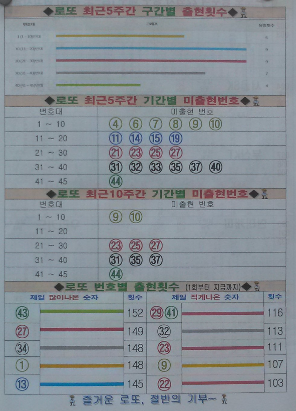 ◆로또 최근5주간 구간별 출현횟수◆
◆로또 최근5주간 기간별 미출현번호◆
번호대 미출현 번호
1 ~ 10 4 6 7 8 9 10
11 ~ 20 11 14 15 19
21 ~ 30 21 23 25 27
31 ~ 40 31 32 33 35 37 40
41 ~ 45 44
◆로또 최근10주간 기간별 미출현번호◆
번호대 미출현 번호
1 ~ 10 9 10
11 ~ 20
21 ~ 30 23 25 27
31 ~ 40 31 35 37
41 ~ 45 44
◆로또 번호별 출현횟수 (1회부터 지금까지)◆
제일 많이나온 숫자 횟수 제일 적게나온 숫자 횟수
43 152 29 41 116
27 149 32 113
34 148 23 111
1 148 9 107
13 145 22 103
즐거운 로또, 절반의 기부~